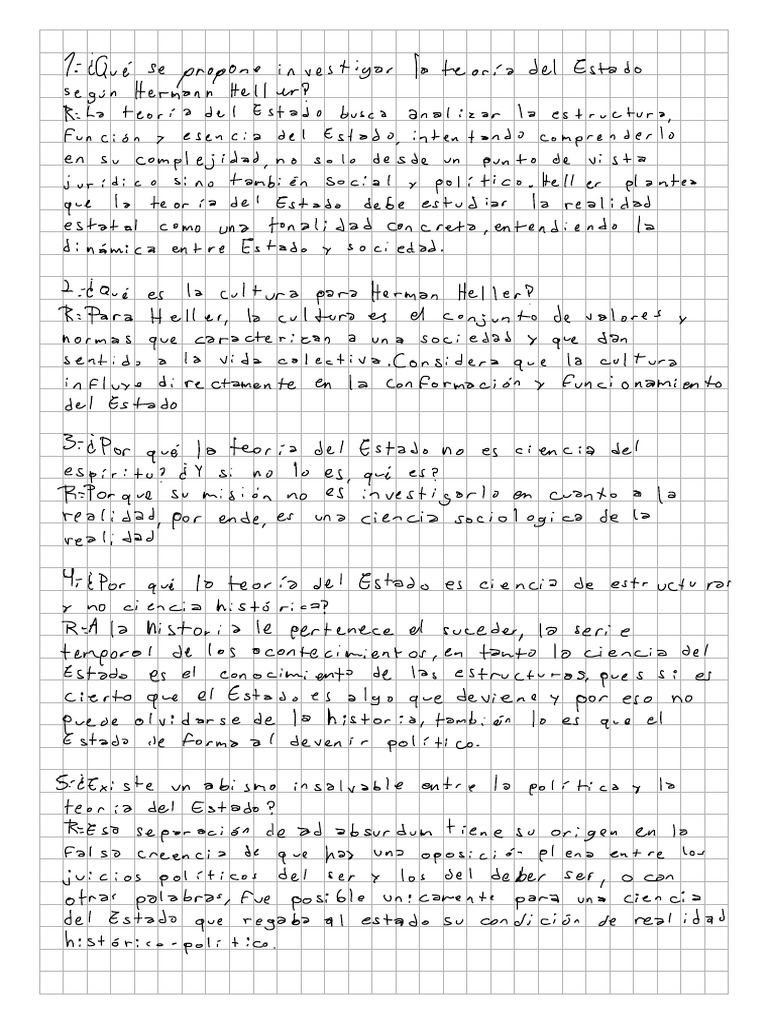 1.-¿Qué se propone investigar la teoría del Estado
según Hermann Heller?
R:-La teoría del Estado busca analizar la estructura,
función y esencia del Estado, intentando comprenderlo
en su complejidad, no solo desde un punto de vista
jurídico sino también social y político. Heller plantea
que la teoría del Estado debe estudiar la realidad
estatal como una tonalidad concreta, entendiendo la
dinámica entre Estado y sociedad.
2.-¿Qué es la cultura para Herman Heller?
R:-Para Heller, la cultura es el conjunto de valores y
normas que caracterizan a una sociedad y que dan
sentido a la vida colectiva. Considera que la cultura
influye directamente en la conformación y funcionamiento
del Estado
3.-¿Por qué la teoría del Estado no es ciencia del
espíritu? ¿Y si no lo es, qué es?
R:-Porque su misión no es investigarlo en cuanto a la
realidad, por ende, es una ciencia sociologica de la
realidad
4.-¿Por qué la teoría del Estado es ciencia de estructuras
y no ciencia histórica?
R:-A la historia le pertenece el suceder, la serie
temporal de los acontecimientos, en tanto la ciencia del
Estado es el conocimiento de las estructuras, pues si es
cierto que el Estado es algo que deviene y por eso no
puede olvidarse de la historia, también lo es que el
Estado de forma al devenir político.
5.-¿Existe un abismo insalvable entre la política y la
teoría del Estado?
R:-Esa separación de ad absurdun tiene su origen en la
falsa creencia de que hay una oposición plena entre los
juicios políticos del ser y los del deber ser, o con
otras palabras, fue posible unicamente para una ciencia
del Estado que regaba al estado su condición de realidad
histórico-político.